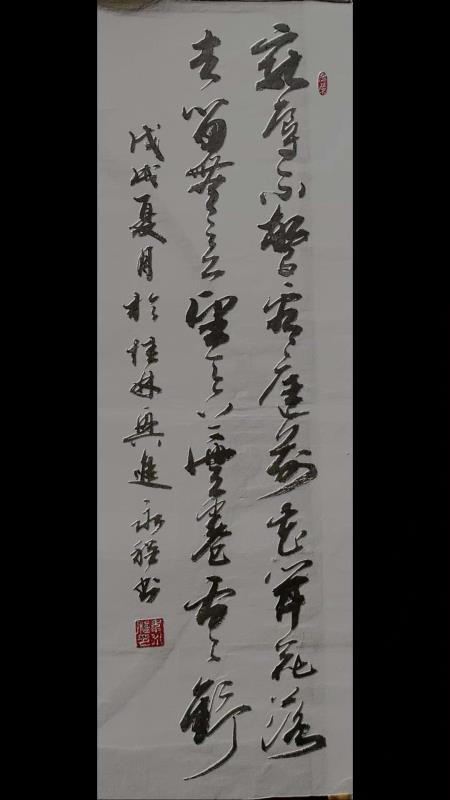 寵辱不驚看庭前花開花落
去留無意望天上雲卷雲舒
戊戌夏月於桂林興進永書